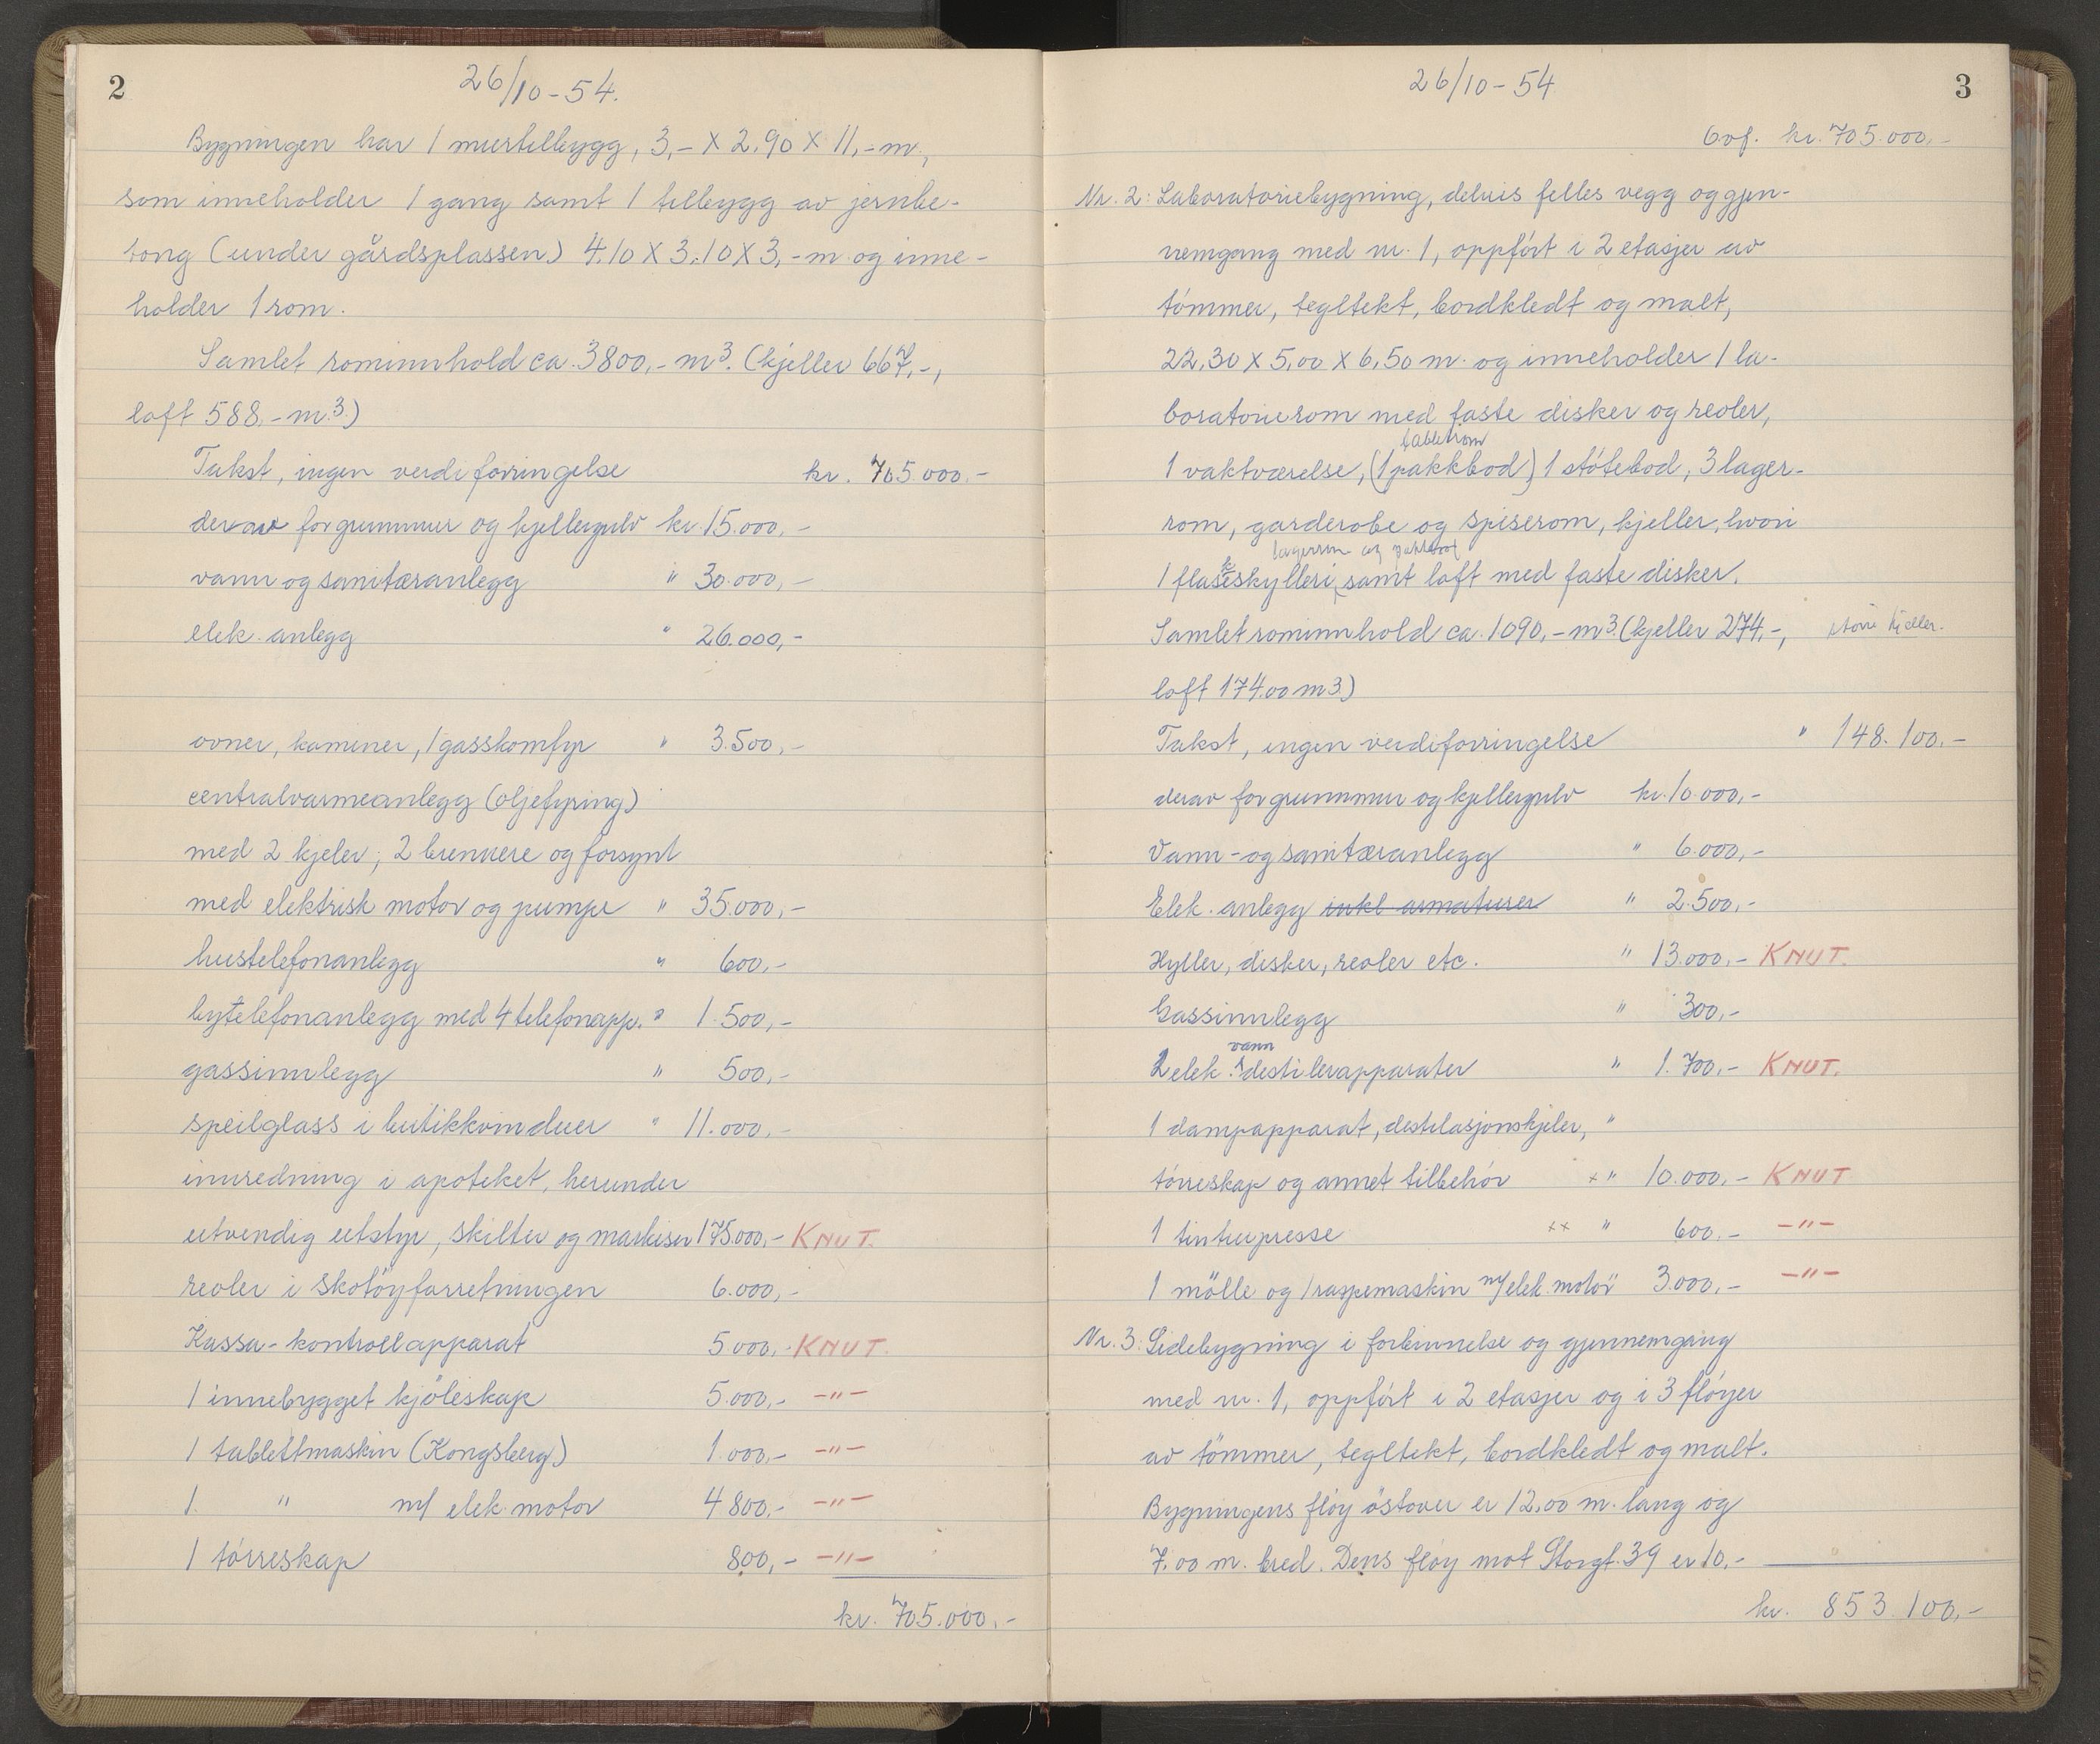 2
26/10-54.
Bygningen har 1 murtilbygg, 3,- X 2.90 X 11,- m.,
som inneholder 1 gang samt 1 tilbygg av jernbe-
tong (under gårdsplassen) 4.10 X 3.10 X 3,- m. og inne-
holder 1 rom.
Samlet rominnhold ca. 3800,- m³. (kjeller 667,-,
loft 588,- m.³.)
Takst, ingen verdiforringelse kr. 705.000.-
derav for grunnmur og kjellergulv kr. 15.000,-
vann og sanitæranlegg " 30.000,-
elek. anlegg " 26.000,-
ovner, kaminer, 1 gasskomfyr " 3.500,-
centralvarmeanlegg (oljefyring)
med 2 kjeler, 2 brennere og forsynt
med elektrisk motor og pumpe " 35.000,-
hustelefonanlegg " 600,-
bytelefonanlegg med 4 telefonapp. " 1.500,-
gassinnlegg " 500,-
speilglass i butikkvinduer " 11.000,-
innredning i apoteket, herunder
utvendig utstyr, skilter og markiser 175.000,- KNUT.
reoler i skotöyforretningen 6.000,-
Kassa-kontrollapparat 5.000,- KNUT.
1 innebygget kjöleskap 5.000,- -"-
1 tablettmaskin (Kongsberg) 1.000,- -"-
1. " m/ elek. motor 4.800,- -"-
1 tórreskap 800,- -"-
kr. 705.000,-
26/10-54
3
Ovf. kr. 705.000,-
Nr. 2: Laboratoriebygning, delvis felles vegg og gjen-
nemgang med nr. 1, oppfórt i 2 etasjer av
tómmer, tegltekt, bordkledt og malt,
22,30 x 5,00 x 6,50 m. og inneholder 1 la-
boratorierom med faste disker og reoler,
tablettrom
1 vaktværelse, (1 pakkbod), 1 stótebod, 3 lager-
rom, garderobe og spiserom, kjeller, hvori
lagerrom og
1 flaskeskylleri, samt loft med faste disker.
Samlet rominnhold ca. 1090,- m³. (kjeller 274,-, större kjeller.
loft 174.00 m3.)
Takst, ingen verdiforringelse " 148.100.-
derav for grunnmur og kjellergulv kr. 10.000,-
Vann- og sanitæranlegg " 6.000,-
Elek. anlegg inkl armaturer " 2.500,-
Hyller, disker, reoler etc. " 13.000,- KNUT.
Gassinnlegg " 300,-
vann
2 elek. destilerapparater " 1.700,- KNUT.
1 dampapparat, destilasjonskjeler, "
tórreskap og annet tilbehór x " 10.000,- KNUT
1 tinturpresse xx " 600,- -"-
1 mölle og 1 raspemaskin m/elek. motor " 3.000,- -"-
Nr. 3: Sidebygning i forbinnelse og gjennemgang
med nr. 1, oppfórt i 2 etasjer og i 3 flóyer
av tömmer, tegltekt, bordkledt og malt.
Bygningens flóy östover er 12,00 m. lang og
7.00 m. bred. Dens flóy mot Storgt. 39 er 10,-
kr. 853.100,-